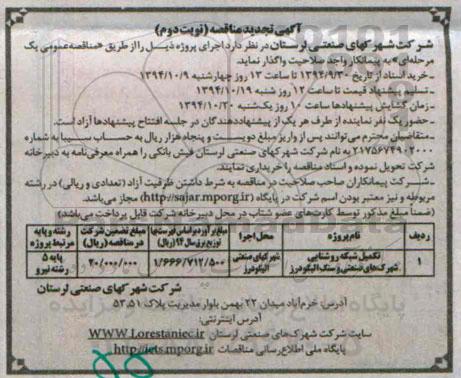 آگهی تجدید مناقصه (نوبت دوم)
شرکت شهرکهای صنعتی لرستان در نظر دارد اجرای پروژه ذیل را از طریق «مناقصه عمومی یک
مرحله‌ای» به پیمانکار واجد صلاحیت واگذار نماید.
ـ خرید اسناد از تاریخ ۱۳۹۴/۹/۳۰ تا ساعت ۱۳ روز چهارشنبه ۱۳۹۴/۱۰/۹
ـ تسلیم پیشنهاد قیمت تا ساعت ۱۲ روز شنبه ۱۳۹۴/۱۰/۱۹
ـ زمان گشایش پیشنهادها ساعت ۱۰ روز یک‌شنبه ۱۳۹۴/۱۰/۲۰
ـ حضور یک نفر نماینده از طرف هر یک از پیشنهاددهندگان در جلسه افتتاح پیشنهادها آزاد است.
ـ متقاضیان محترم می‌توانند پس از واریز مبلغ دویست و پنجاه هزار ریال به حساب سیبا به شماره
۲۱۷۵۶۷۴۹۰۲۰۰۰ به نام شرکت شهرکهای صنعتی لرستان فیش بانکی را همراه معرفی‌نامه به دبیرخانه
شرکت تحویل نموده و اسناد مناقصه را خریداری نمایند.
ـ شرکت پیمانکاران صاحب صلاحیت در مناقصه به شرط داشتن ظرفیت آزاد (تعدادی و ریالی) در رشته
مربوطه و نیز معتبر بودن اسم شرکت در پایگاه (http://sajar.mporg.ir) مجاز می‌باشد.
(ضمناً مبلغ مذکور توسط کارت‌های عضو شتاب در محل دبیرخانه شرکت قابل پرداخت می‌باشد)
ردیف نام پروژه محل اجرا مبلغ برآورد بر اساس فهرست بهای توزیع برق سال ۹۴ (ریال) مبلغ تضمین شرکت در مناقصه (ریال) رشته و پایه مرتبط پروژه
۱ تکمیل شبکه روشنایی شهرک‌های صنعتی و سنگ الیگودرز شهرکهای صنعتی الیگودرز ۱/۶۶۶/۷۱۲/۵۰۰ ۲۰/۰۰۰/۰۰۰ پایه ۵ رشته نیرو
شرکت شهرکهای صنعتی لرستان
آدرس: خرم‌آباد میدان ۲۲ بهمن بلوار مدیریت پلاک ۵۳.۵۱
آدرس اینترنتی:
سایت شرکت شهرک‌های صنعتی لرستان WWW.Lorestaniec.ir
پایگاه ملی اطلاع‌رسانی مناقصات http://iets.mporg.ir